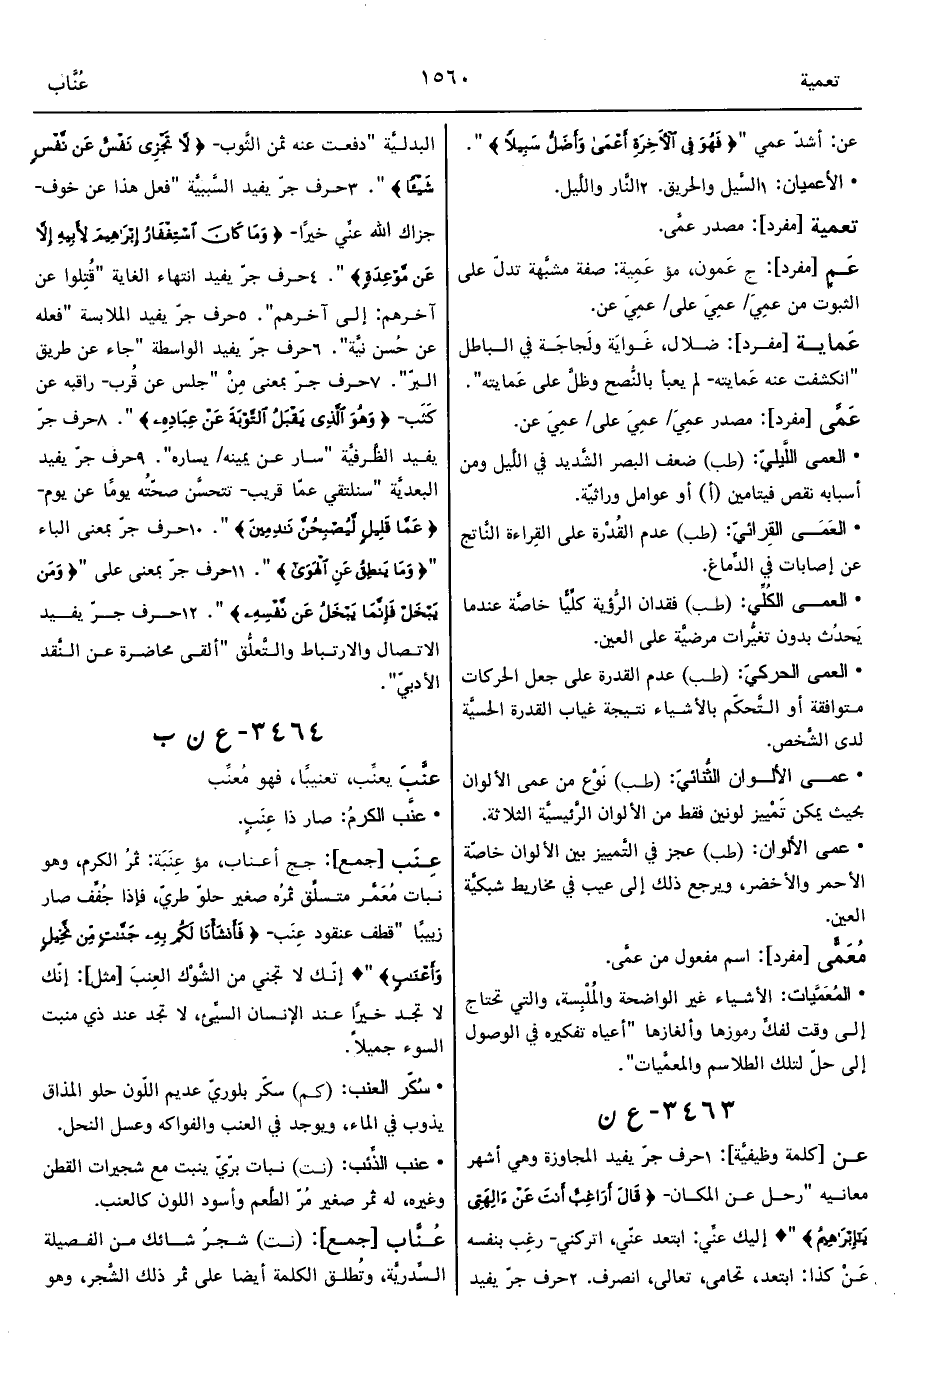 تعمية
١٥٦٠
عُنَّاب
عن: أشدّ عمي "﴿ فَهُوَ فِي الآخِرَةِ أَعْمَى وَأَضَلُّ سَبِيلاً ﴾".
• الأعميان: ١السَّيل والحريق. ٢النَّار واللَّيل.
تعمية [مفرد]: مصدر عمَّى.
عَمٍ [مفرد]: ج عَمون، مؤ عَمِية: صفة مشبَّهة تدلّ على
الثبوت من عمِيَ/ عمِيَ على/ عمِيَ عن.
عَماية [مفرد]: ضلال، غَوايَة ولَجاجَة في الباطل
"انكشفت عنه عَمايته- لم يعبأ بالنُّصح وظلَّ على عَمايته".
عَمًى [مفرد]: مصدر عمِيَ/ عمِيَ على/ عمِيَ عن.
• العمى اللَّيليّ: (طب) ضعف البصر الشَّديد في اللَّيل ومن
أسبابه نقص فيتامين (أ) أو عوامل وراثيَّة.
• العَمَى القِرائيّ: (طب) عدم القُدْرة على القِراءة النَّاتج
عن إصابات في الدِّماغ.
• العمى الكُلِّي: (طب) فقدان الرُّؤية كلِّيًّا خاصَّة عندما
يَحدُث بدون تغيُّرات مرضيَّة على العين.
• العمى الحركيّ: (طب) عدم القدرة على جعل الحركات
متوافقة أو التَّحكّم بالأشياء نتيجة غياب القدرة الحسيَّة
لدى الشَّخص.
• عمى الألوان الثُّنائيّ: (طب) نَوْع من عمى الألوان
بحيث يمكن تَمْييز لونين فقط من الألوان الرَّئيسيَّة الثلاثة.
• عمى الألوان: (طب) عجز في التَّمييز بين الألوان خاصَّة
الأحمر والأخضر، ويرجع ذلك إلى عيب في مخاريط شبكيَّة
العين.
مُعَمًّى [مفرد]: اسم مفعول من عمَّى.
• المُعَمَّيات: الأشياء غير الواضحة والمُلْبِسة، والتي تحتاج
إلى وقت لفكّ رموزها وألغازها "أعياه تفكيره في الوصول
إلى حلّ لتلك الطلاسم والمعمَّيات".
٣٤٦٣- ع ن
عن [كلمة وظيفيَّة]: ١حرف جرّ يفيد المجاوزة وهي أشهر
معانيه "رحل عن المكان- ﴿ قَالَ أَرَاغِبٌ أَنتَ عَنْ ءَالِهَتِي
يَٰإِبْرَٰهِيمُ ﴾ "♦ إليك عنِّي: ابتعد عنّي، اتركني- رغِب بنفسه
عَنْ كذا: ابتعد، تحامى، تعالى، انصرف. ٢حرف جرّ يفيد
البدليَّة "دفعت عنه ثمن الثَّوب- ﴿ لَّا تَجْزِي نَفْسٌ عَن نَّفْسٍ
شَيْئًا ﴾". ٣حرف جرّ يفيد السَّببيَّة "فعل هذا عن خوف-
جزاك الله عنِّي خيرًا- ﴿ وَمَا كَانَ اسْتِغْفَارُ إِبْرَٰهِيمَ لِأَبِيهِ إِلَّا
عَن مَّوْعِدَةٍ ﴾". ٤حرف جرّ يفيد انتهاء الغاية "قُتِلوا عن
آخرهم: إلى آخرهم". ٥حرف جرّ يفيد الملابسة "فعله
عن حُسن نيَّة". ٦حرف جرّ يفيد الواسطة "جاء عن طريق
البرّ". ٧حرف جرّ بمعنى مِنْ "جلس عن قُرب- راقبه عن
كَثَب- ﴿ وَهُوَ الَّذِي يَقْبَلُ التَّوْبَةَ عَنْ عِبَادِهِ ﴾". ٨حرف جرّ
يفيد الظَّرفيَّة "سار عن يمينه/ يساره". ٩حرف جرّ يفيد
البعديَّة "سنلتقي عمّا قريب- تتحسَّن صحّتُه يومًا عن يوم-
﴿ عَمَّا قَلِيلٍ لَّيُصْبِحُنَّ نَٰدِمِينَ ﴾". ١٠حرف جرّ بمعنى الباء
"﴿ وَمَا يَنطِقُ عَنِ الْهَوَىٰ ﴾". ١١حرف جرّ بمعنى على "﴿ وَمَن
يَبْخَلْ فَإِنَّمَا يَبْخَلُ عَن نَّفْسِهِ ﴾". ١٢حرف جرّ يفيد
الاتصال والارتباط والتَّعلُّق "ألقى محاضرة عن النَّقد
الأدبيّ".
٣٤٦٤- ع ن ب
عنَّبَ يعنِّب، تعنيبًا، فهو مُعنِّب
• عنَّب الكرمُ: صار ذا عِنَبٍ.
عِنَب [جمع]: جج أعناب، مؤ عِنَبَة: ثمرُ الكرم، وهو
نبات مُعَمَّر متسلِّق ثمرُه صغير حلوّ طريّ، فإذا جُفِّف صار
زبيبًا "قطف عنقود عنِب- ﴿ فَأَنشَأْنَا لَكُم بِهِ جَنَّٰتٍ مِّن نَّخِيلٍ
وَأَعْنَٰبٍ ﴾ "♦ إنَّك لا تجني من الشَّوْك العنبَ [مثل]: إنّك
لا تجد خيرًا عند الإنسان السيِّئ، لا تجد عند ذي منبت
السوء جميلاً.
• سُكّر العنب: (كم) سكّر بلوريّ عديم اللّون حلو المذاق
يذوب في الماء، ويوجد في العنب والفواكه وعسل النحل.
• عنب الذِّئب: (نت) نبات برّيّ ينبت مع شجيرات القطن
وغيره، له ثمر صغير مُرّ الطَّعم وأسود اللون كالعنب.
عُنَّاب [جمع]: (نت) شجرٌ شائك من الفصيلة
السِّدريَّة، وتُطلق الكلمة أيضا على ثمر ذلك الشَّجر، وهو